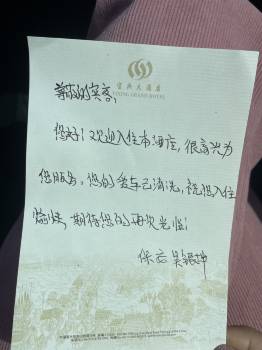 宜兴大酒店
YIXING GRAND HOTEL
尊敬的宾客,
您好!欢迎入住本酒店,很高兴为
您服务,您的爱车已清洗,祝您入住
愉快,期待您的再次光临!
保安 吴银坤